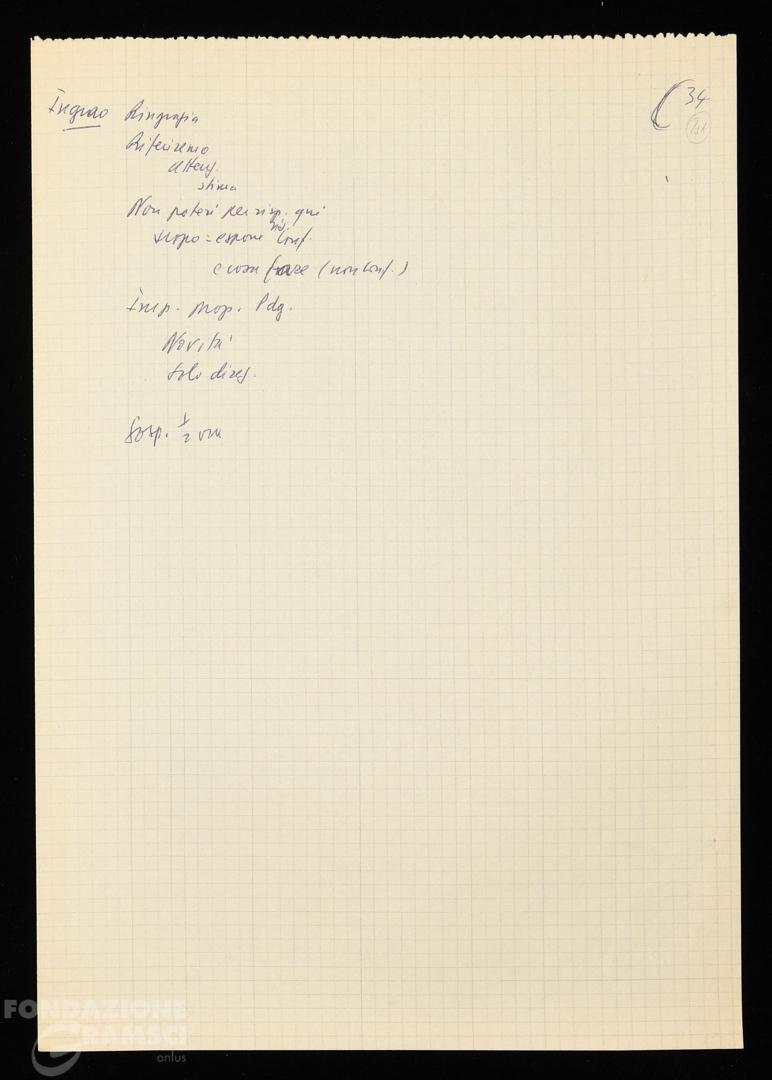 Ingrao Ringrazia
34
41
Riferiremo
atteng.
stima
Non poteri per risp. qui
scopo = esporre Conf.
e cosa fare (non Conf.)
Imp. prop. Pdg.
Novità
solo direz.
Sosp. 1/2 ora
FONDAZIONE
GRAMSCI
onlus